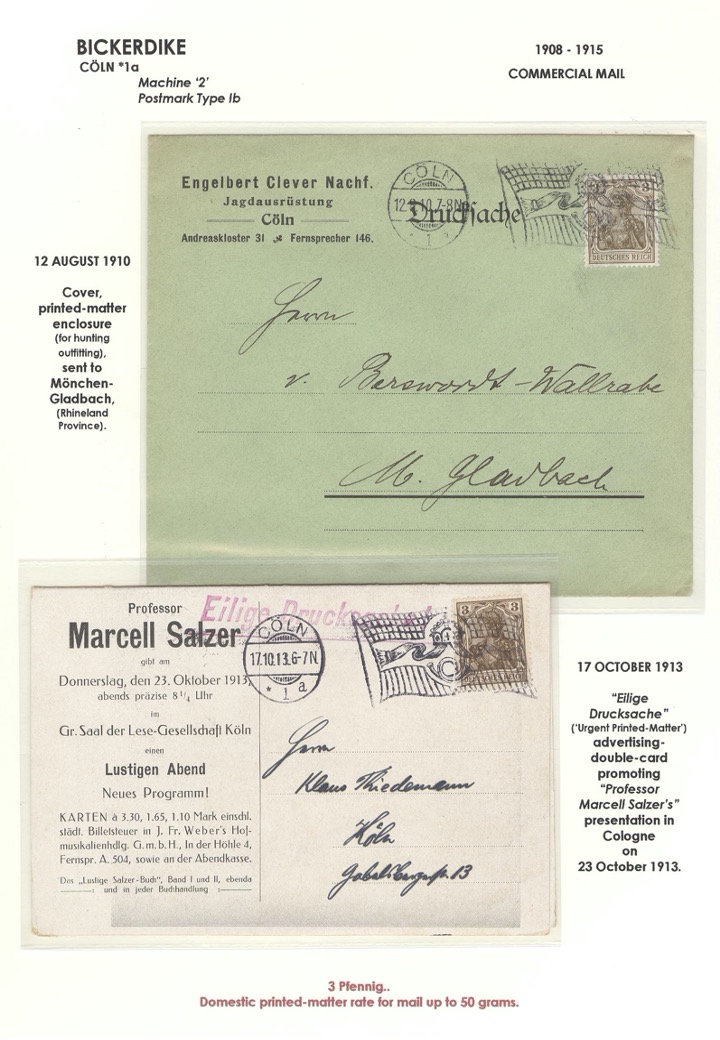 BICKERDIKE
CÖLN *1a
Machine ‘2’
Postmark Type Ib
1908 - 1915
COMMERCIAL MAIL
12 AUGUST 1910
Cover,
printed-matter
enclosure
(for hunting
outfitting),
sent to
Mönchen-
Gladbach,
(Rhineland
Province).
Engelbert Clever Nachf.
Jagdausrüstung
Cöln
Andreaskloster 31 Fernsprecher 146.
CÖLN
7-8N
* 1
Drucksache
3
DEUTSCHES REICH
Herrn
v. Berswordt-Wallrabe
M. Gladbach
Professor
Marcell Salzer
gibt am
Donnerstag, den 23. Oktober 1913,
abends präzise 8 1/4 Uhr
im
Gr. Saal der Lese-Gesellschaft Köln
einen
Lustigen Abend
Neues Programm!
KARTEN à 3.30, 1.65, 1.10 Mark einschl.
städt. Billetsteuer in J. Fr. Weber's Hof-
musikalienhdlg. G. m. b. H., In der Höhle 4,
Fernspr. A. 504, sowie an der Abendkasse.
Das „Lustige Salzer-Buch“, Band I und II, ebenda
und in jeder Buchhandlung
Eilige Drucksache
CÖLN
17.10.13.6-7N
* 1 a
3 3
DEUTSCHES REICH
Herrn
Klaus Thiedemann
Köln
13
17 OCTOBER 1913
“Eilige
Drucksache”
(‘Urgent Printed-Matter’)
advertising-
double-card
promoting
“Professor
Marcell Salzer’s”
presentation in
Cologne
on
23 October 1913.
3 Pfennig..
Domestic printed-matter rate for mail up to 50 grams.